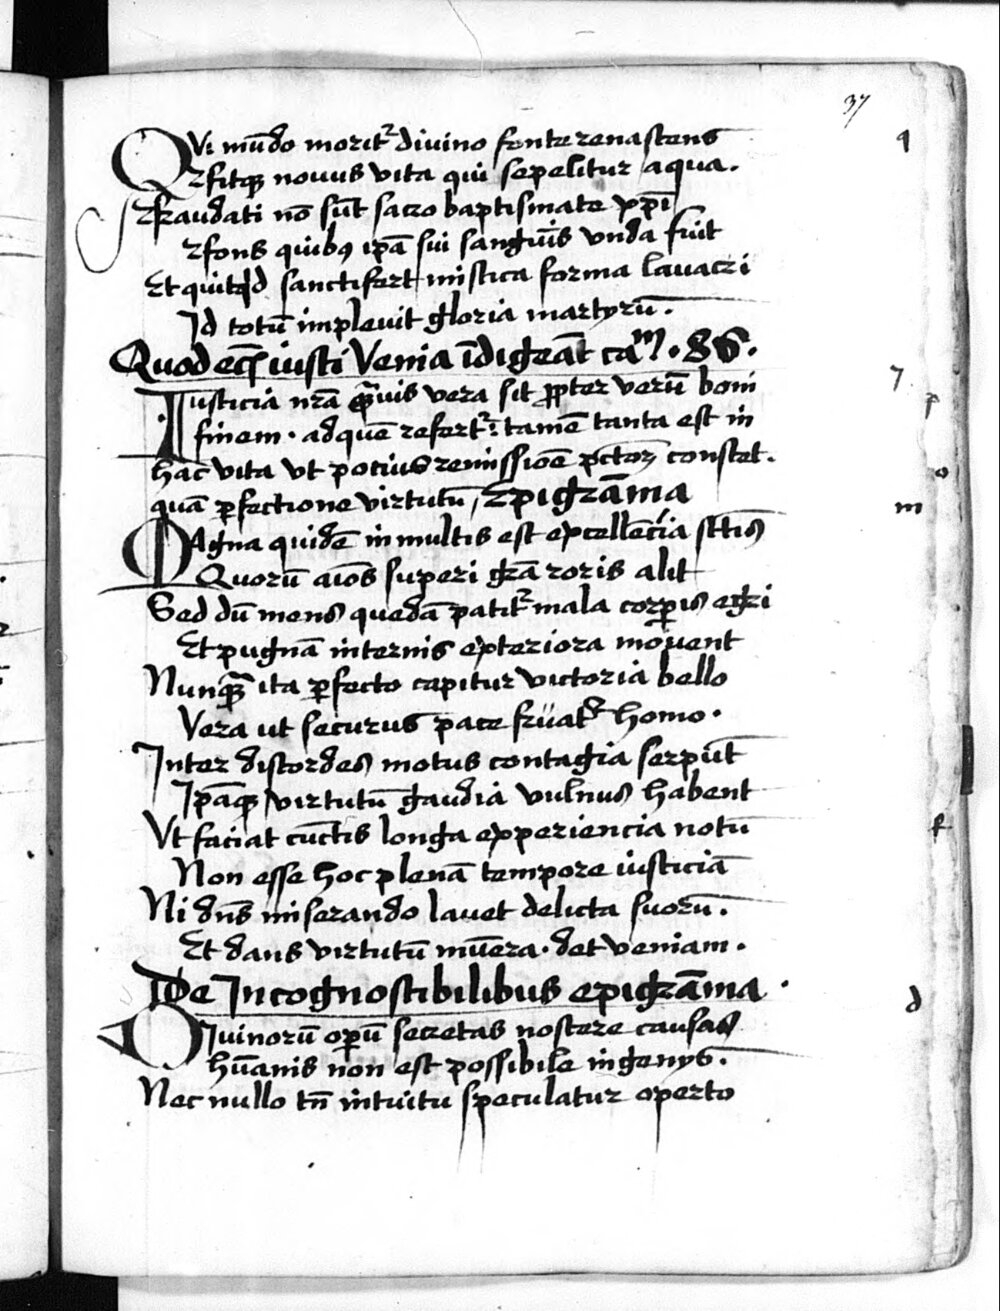 37
QVi mūdo morit᷑ divino fonte renascens
Efitq; novus vita qui sepelitur aqua.
Fraudati nō sūt sacro baptismate xp̄i
Efons quibꝯ ip̄a sui sangui̅s vnda fuit
Et quitqd sanctifert mistica forma lavacri
Id totū implevit gloria martyrū.
Quod ecīa iusti Venia īdigeāt caᵐ. 86.
Iusticia nr̄a q̄uis vera sit ꝓpter verū boni
finem. ad quē refert᷑: tamē tanta est in
hac vita vt potius remissiōe pctoꝝ constet.
quā ꝑfectione virtutū, Epigrāma
MAgna quidē in multis est excellēcia sctis
Quorū aīos superi gr̄a roris alit
Sed dū mens quedā patit᷑ mala corꝑis egri
Et pugnā internis exteriora movent
Nunq̄ ita ꝑfecto capitur victoria bello
Vera ut securus pace fruat᷑ homo.
Inter discordes motus contagia serpūt
Ip̄aq; virtutū gaudia vulnus habent
Vt faciat cūctis longa experiencia notū
Non esse hoc plenā tempore iusticiā
Ni dn̄s miserando lavet delicta suorū.
Et dans virtutū mūera. det veniam.
De Incognoscibilibus epigrāma.
DIvinorū oꝑū secretas noscere causas
hūanis non est possibile ingenys.
Nec nullo tn̄ intuitu speculatur operto
q
7
p
o
m
f
d